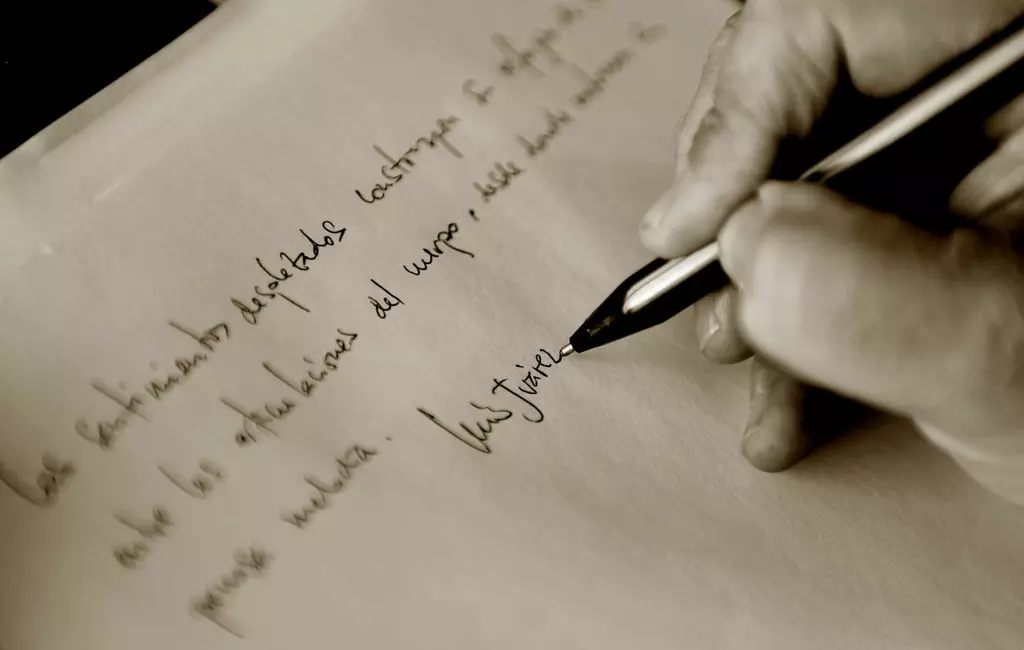 Los sentimientos despletados construyen su
entre las articulaciones del cuerpo, desde donde
penosa melodía.
Luis Juárez